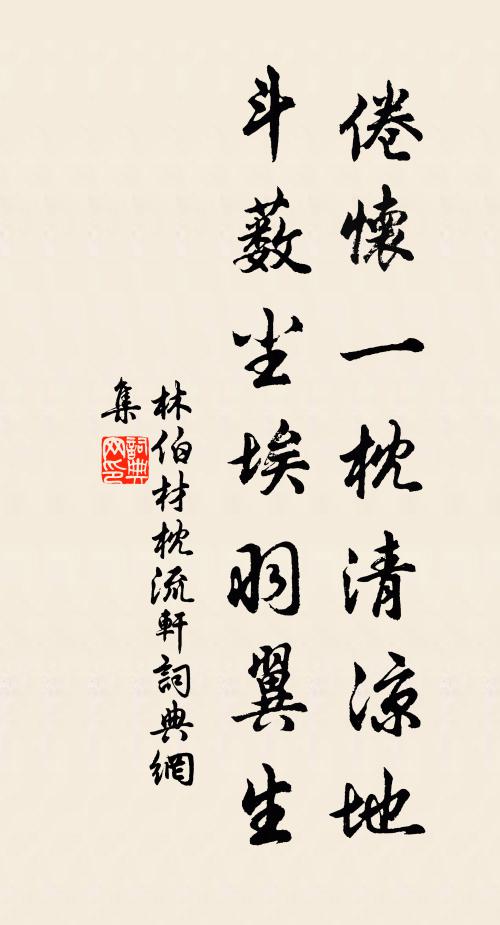 倦懷一枕清凉地
斗藪尘埃羽翼生
林伯材枕流軒詞典網
集
詞典
网印